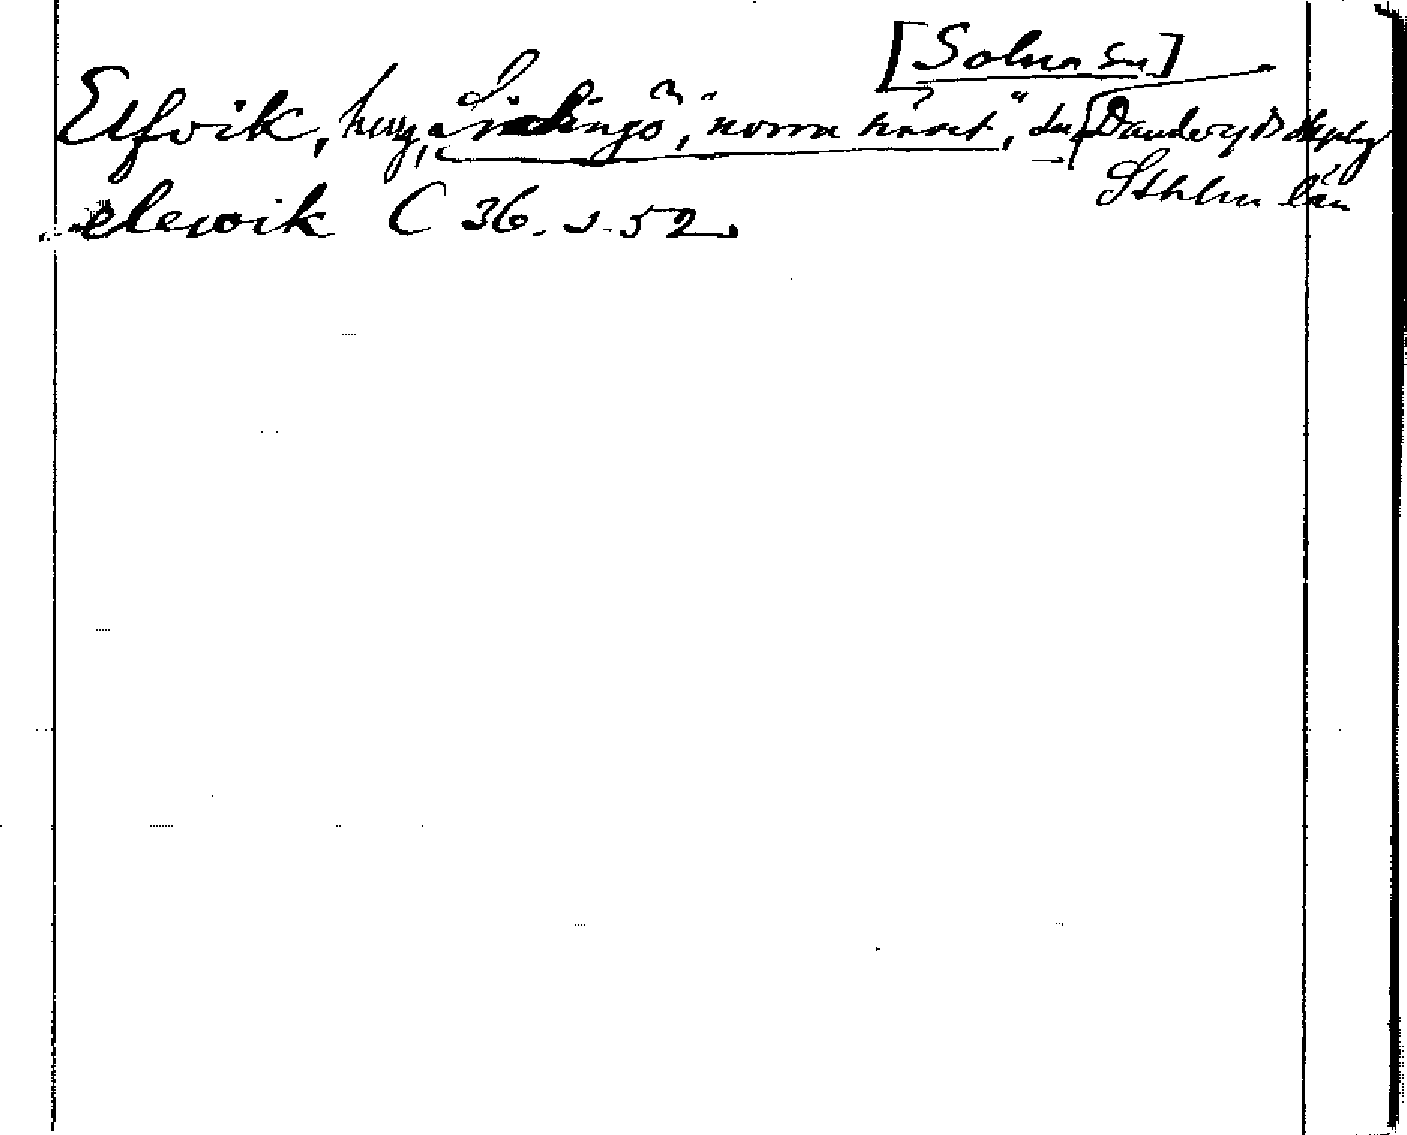 [Solna sn]
Elfvik, hmg, Lidingö, "norra kåset", Danderyds skplg
Sthlm län
elewik C 36. s. 52.